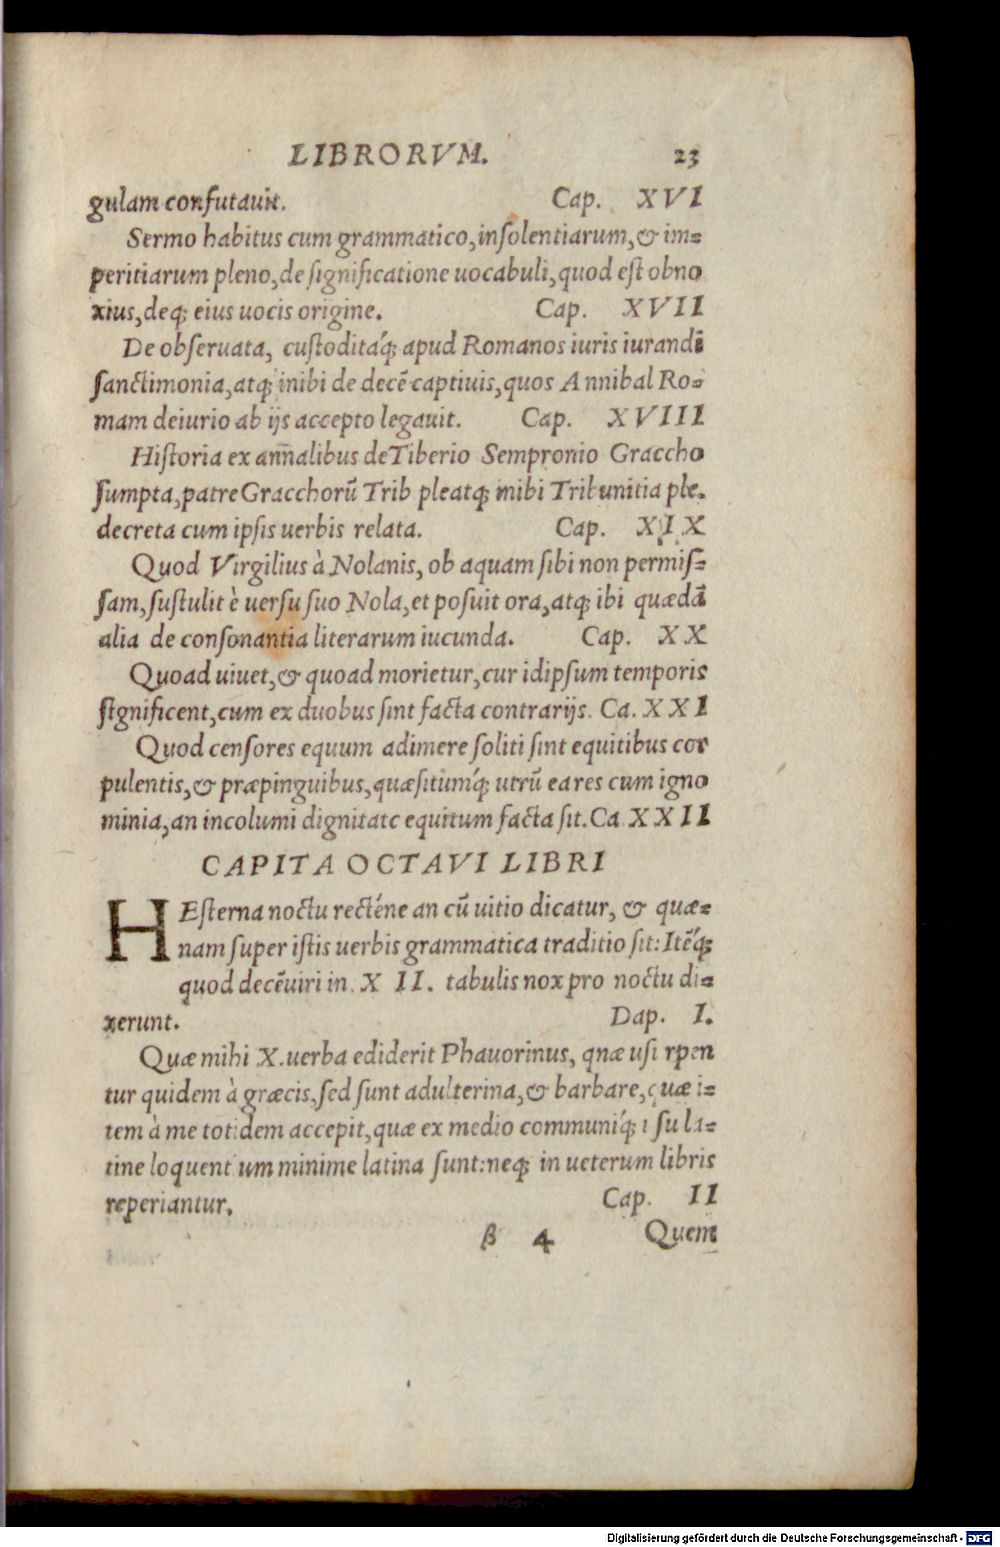 LIBRORVM. 23
gulam confutauit. Cap. XVI
Sermo habitus cum grammatico, insolentiarum, & im=
peritiarum pleno, de significatione uocabuli, quod est obno
xius, deq; eius uocis origine. Cap. XVII
De obseruata, custoditáq; apud Romanos iuris iurandi
sanctimonia, atq; inibi de decē captiuis, quos Annibal Ro=
mam deiurio ab ijs accepto legauit. Cap. XVIII
Historia ex annalibus de Tiberio Sempronio Graccho
sumpta, patre Gracchorū Trib pleatq; inibi Tribunitia ple.
decreta cum ipsis uerbis relata. Cap. XIX
Quod Virgilius à Nolanis, ob aquam sibi non permis=
sam, sustulit è uersu suo Nola, et posuit ora, atq; ibi quædā
alia de consonantia literarum iucunda. Cap. XX
Quoad uiuet, & quoad morietur, cur idipsum temporis
significent, cum ex duobus sint facta contrarijs. Ca. XXI
Quod censores equum adimere soliti sint equitibus cor
pulentis, & præpinguibus, quæsitumq́; utrū ea res cum igno
minia, an incolumi dignitatc equitum facta sit. Ca XXII
CAPITA OCTAVI LIBRI
HEsterna noctu recténe an cū uitio dicatur, & quæ=
nam super istis uerbis grammatica traditio sit: Itēq́;
quod decēuiri in. X II. tabulis nox pro noctu di=
xerunt. Dap. I.
Quæ mihi X. uerba ediderit Phauorinus, qnæ usi rpen
tur quidem à græcis, sed sunt adulterina, & barbare, quæ i=
tem à me totidem accepit, quæ ex medio communiq́; ı su la=
tine loquentium minime latina sunt: neq; in ueterum libris
reperiantur. Cap. II
β 4 Quem
Digitalisierung gefördert durch die Deutsche Forschungsgemeinschaft - DFG